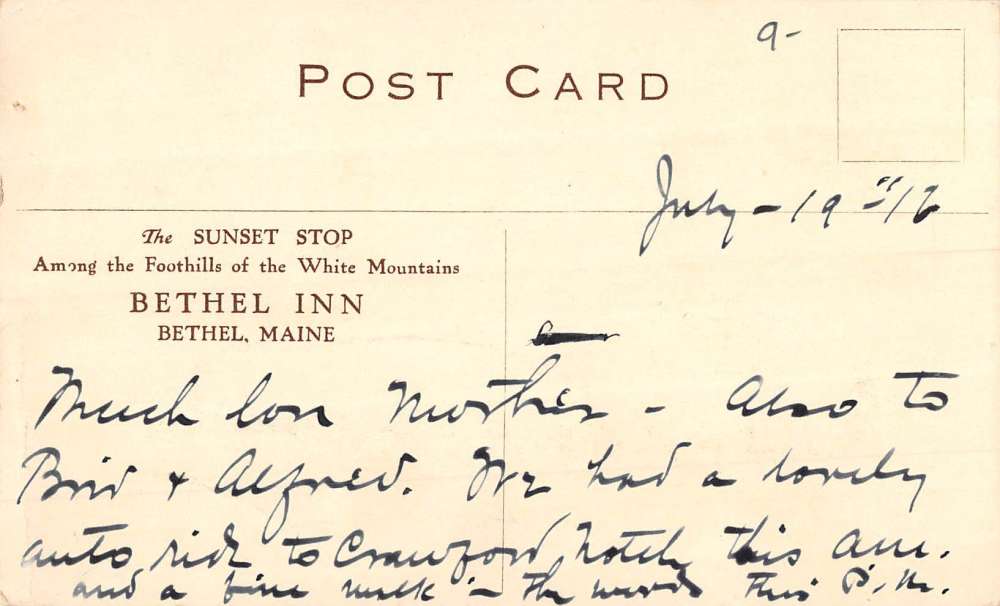 9-
POST CARD
July - 19 - "16
The SUNSET STOP
Among the Foothills of the White Mountains
BETHEL INN
BETHEL, MAINE
Much love Mother - Also to
Bird + Alfred. We had a lovely
auto ride to Crawford Notch this am.
and a fine walk in the woods this P.M.